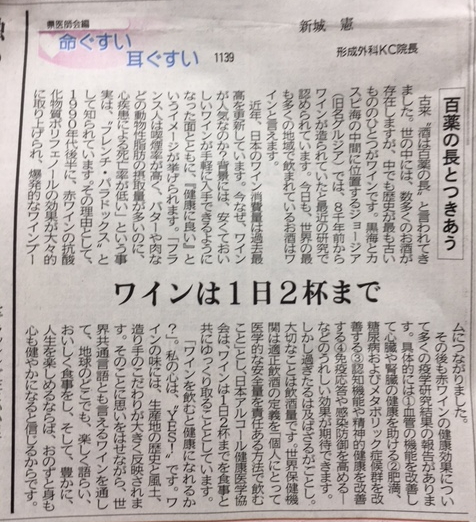 県医師会編
命ぐすい
耳ぐすい
1139
新城 憲
形成外科KC院長
百薬の長とつきあう
古来〝酒は百薬の長〟と言われてき
ました。世の中には、数多くのお酒が
存在しますが、中でも歴史が最も古い
もののひとつがワインです。黒海とカ
スピ海の中間に位置するジョージア
(旧名グルジア)では、8千年前から
ワインが造られていたと最近の研究で
認められています。今日も、世界の最
も多くの地域で飲まれているお酒はワ
インと言えます。
近年、日本のワイン消費量は過去最
高を更新しています。今なぜ、ワイン
が人気なのか?背景には、安くておい
しいワインが手軽に入手できるように
なった面とともに、『健康に良い』と
いうイメージが挙げられます。「フラ
ンス人は喫煙率が高く、バターや肉な
どの動物性脂肪の摂取量が多いのに、
心疾患による死亡率が低い」という事
実は、〝フレンチ・パラドックス〟と
して知られています。その理由として、
1990年代後半に、赤ワインの抗酸
化物質ポリフェノールの効果が大々的
に取り上げられ、爆発的なワインブー
ワインは1日2杯まで
ムにつながりました。
その後も赤ワインの健康効果につい
て多くの疫学研究結果の報告がありま
す。具体的には①血管の機能を改善し
て心臓や腎臓の健康を助ける②肥満、
糖尿病およびメタボリック症候群を改
善する③認知機能や精神的健康を改善
する④免疫応答や感染防御を高める―
などのうれしい効果が期待できます。
しかし過ぎたるは及ばざるがごとし。
大切なことは飲酒量です。世界保健機
関は適正飲酒の定義を「個人にとって
医学的な安全量を責任ある方法で飲む
こと」とし、日本アルコール健康医学協
会は、ワインは1日2杯までを食事と
共にゆっくり取ることとしています。
「ワインを飲むと健康になれるか
?」。私の心は、〝YES!〟です。ワ
インの味には、生産地の歴史と風土、
造り手のこだわりが大きく反映されま
す。そのことに思いをはせながら、世
界共通言語とも言えるワインを通し
て、地球のどこでも、楽しく語らい、
おいしく食事をし、そして、豊かに、
人生を楽しめるならば、おのずと身も
心も健やかになると信じるからです。